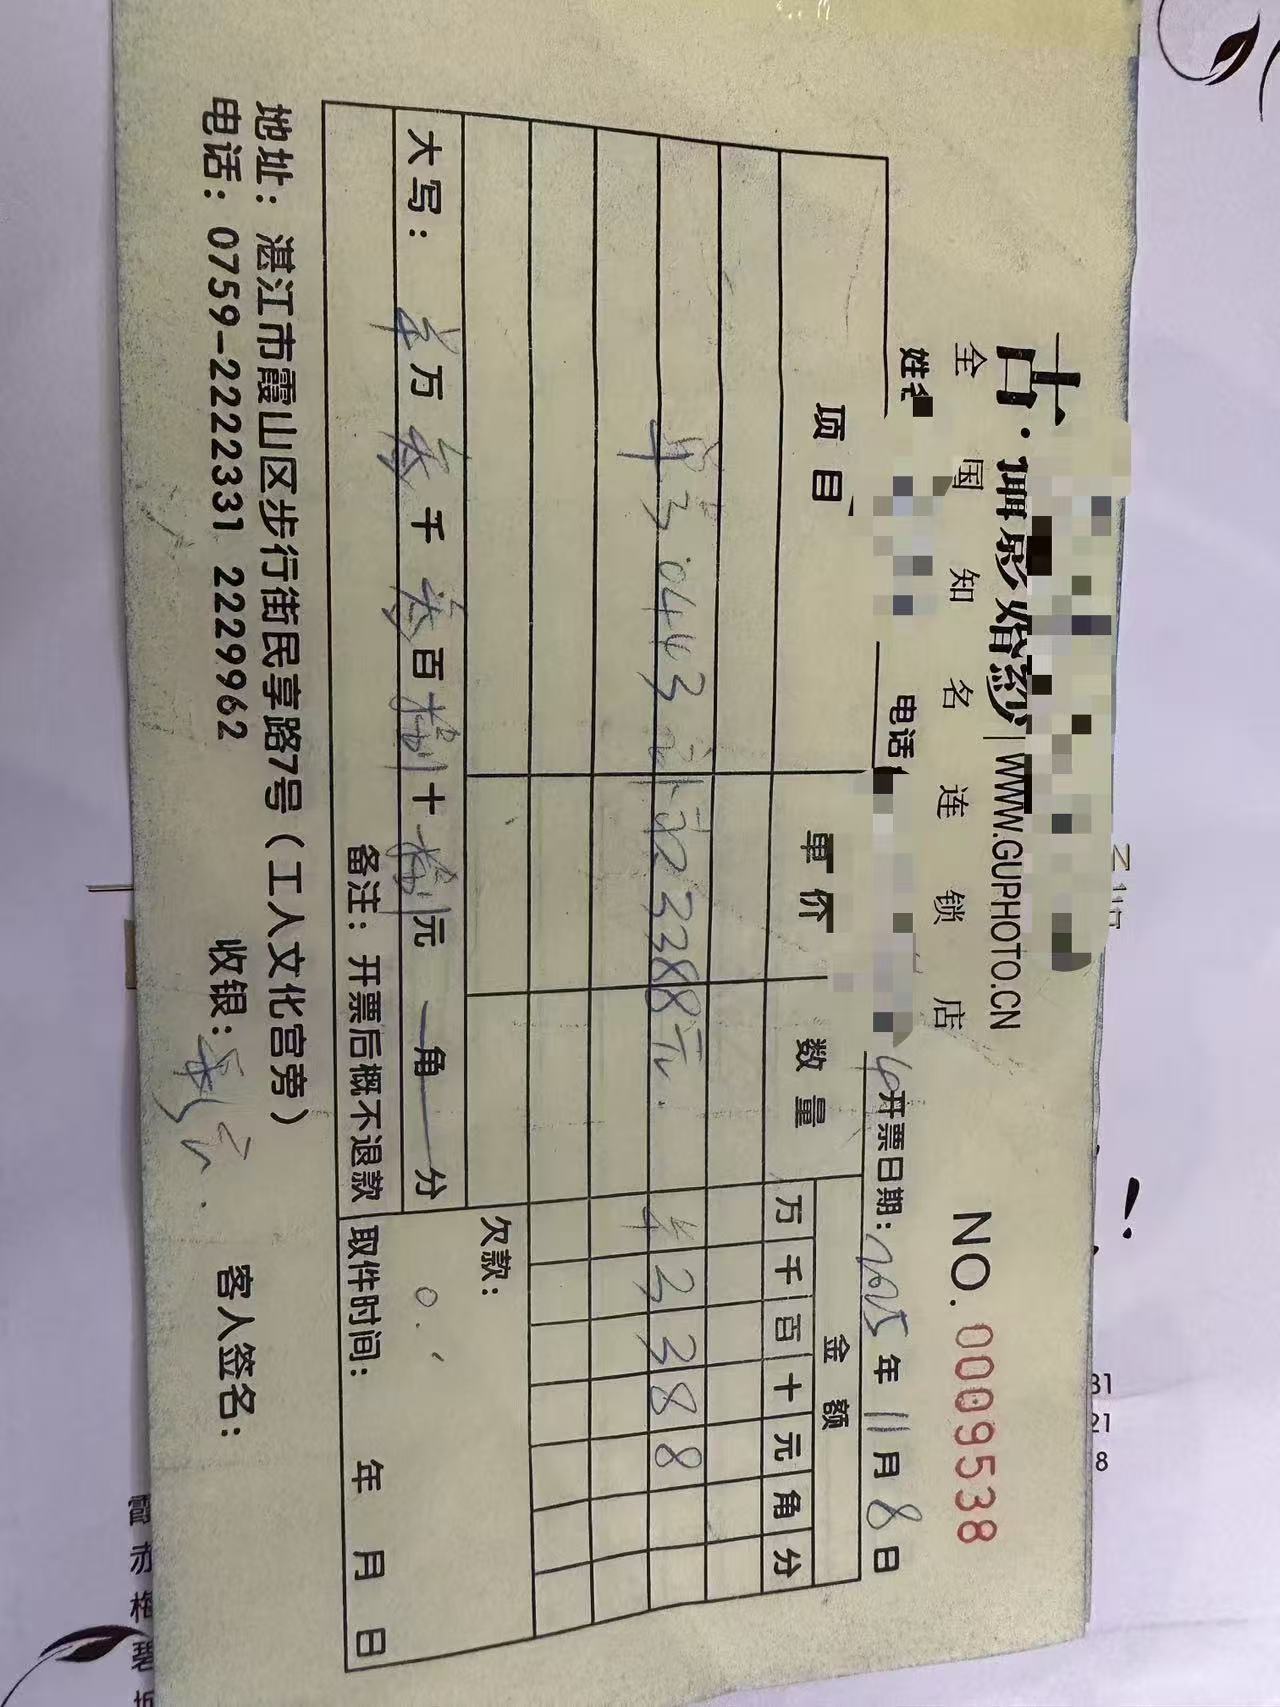 古·
影婚纱 | WWW.GUPHOTO.CN
全国知名连锁店
NO. 0009538
姓名
电话
开票日期: 2025年11月8日
项目
单价
数量
金额
万千百十元角分
单3.0443
2388元.
¥2388
欠款:
0.
大写: 万 千 百 捌十 捌元 角 分
备注: 开票后概不退款
取件时间: 年 月 日
地址: 湛江市霞山区步行街民享路7号(工人文化宫旁)
电话: 0759-2222331 2229962
收银:
客人签名:
31
21
8
霞
赤
梅
碧